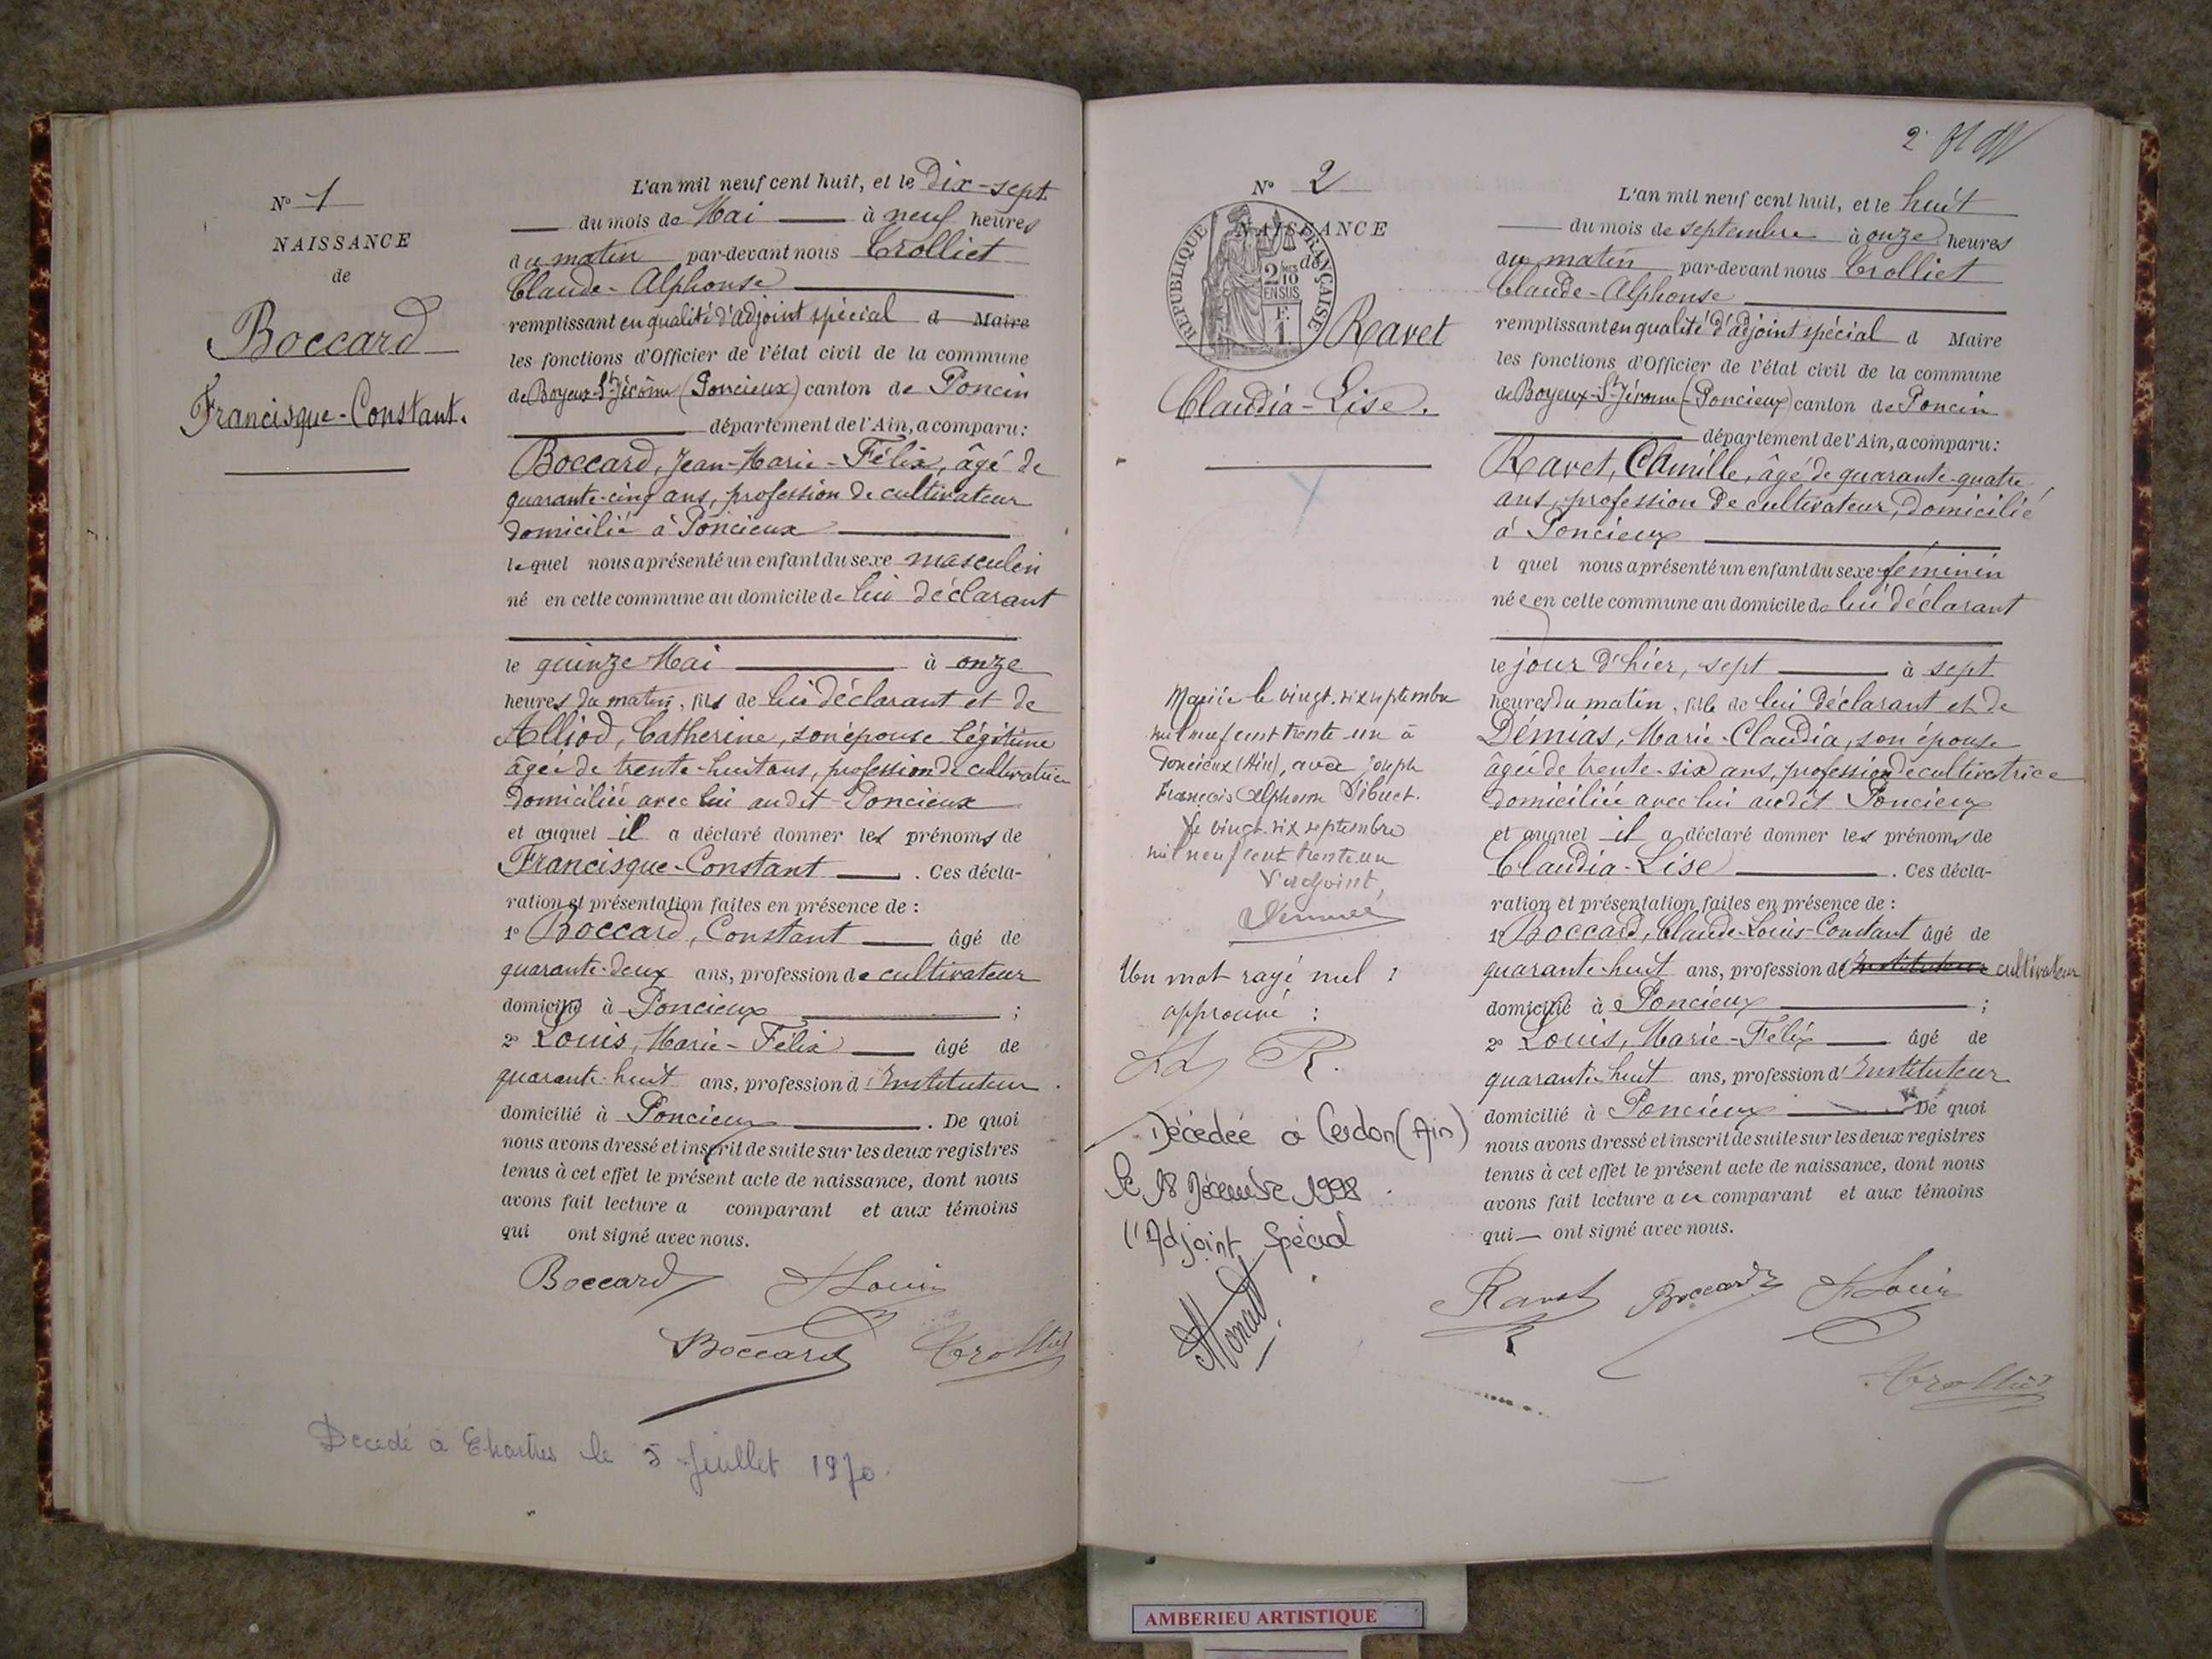 N° 1
NAISSANCE
de
Boccard
Francisque-Constant.
L'an mil neuf cent huit, et le Dix-sept
du mois de Mai à neuf heures
du matin par-devant nous Trolliet
Claude-Alphonse
remplissant en qualité d'adjoint spécial d Maire
les fonctions d'Officier de l'état civil de la commune
de Boyeux-St-Jérôme (Poncieux) canton de Poncin
département de l'Ain, a comparu:
Boccard, Jean-Marie-Félix, âgé de
quarante-cinq ans, profession de cultivateur
domicilié à Poncieux
lequel nous a présenté un enfant du sexe masculin
né en cette commune au domicile de lui déclarant
le quinze Mai à onze
heures du matin, fils de lui déclarant et de
Alliod, Catherine, son épouse légitime
âgée de trente-huit ans, profession de cultivatrice
domiciliée avec lui audit Poncieux
et auquel il a déclaré donner les prénoms de
Francisque-Constant. Ces décla-
ration et présentation faites en présence de :
1° Boccard, Constant âgé de
quarante-deux ans, profession de cultivateur
domicilié à Poncieux ;
2° Louis, Marie-Félix âgé de
quarante-huit ans, profession d'Instituteur
domicilié à Poncieux. De quoi
nous avons dressé et inscrit de suite sur les deux registres
tenus à cet effet le présent acte de naissance, dont nous
avons fait lecture a comparant et aux témoins
qui ont signé avec nous.
Boccard Louis
Boccard Trolliet
Decedé à Chartres le 5 Juillet 1970.
2
N° 2
NAISSANCE
de
REPUBLIQUE FRANÇAISE
2/10 EN SUS
F. 1.
Ravet
Claudia-Lise.
Mariée le vingt-six septembre
mil neuf cent trente un à
Poncieux (Ain), avec Joseph
François Alphonse Dibuet.
le vingt-six septembre
mil neuf cent trente un
L'adjoint,
Un mot rayé nul :
approuvé :
R.
Décédée à Cerdon (Ain)
le 18 Décembre 1998.
l'Adjoint Spécial
L'an mil neuf cent huit, et le huit
du mois de septembre à onze heures
du matin par-devant nous Trolliet
Claude-Alphonse
remplissant en qualité d'adjoint spécial d Maire
les fonctions d'Officier de l'état civil de la commune
de Boyeux-St-Jérôme (Poncieux) canton de Poncin
département de l'Ain, a comparu:
Ravet, Camille, âgé de quarante-quatre
ans, profession de cultivateur, domicilié
à Poncieux
l quel nous a présenté un enfant du sexe féminin
née en cette commune au domicile de lui déclarant
le jour d'hier, sept à sept
heures du matin, fille de lui déclarant et de
Démias, Marie-Claudia, son épouse
âgée de trente-six ans, profession de cultivatrice
domiciliée avec lui audit Poncieux
et auquel il a déclaré donner les prénoms de
Claudia-Lise. Ces décla-
ration et présentation faites en présence de :
1° Boccard, Claude-Louis-Constant âgé de
quarante-huit ans, profession de Instituteur cultivateur
domicilié à Poncieux ;
2° Louis, Marie-Félix âgé de
quarante huit ans, profession d'Instituteur
domicilié à Poncieux De quoi
nous avons dressé et inscrit de suite sur les deux registres
tenus à cet effet le présent acte de naissance, dont nous
avons fait lecture au comparant et aux témoins
qui ont signé avec nous.
Ravet Boccard Louis
Trolliet
AMBERIEU ARTISTIQUE